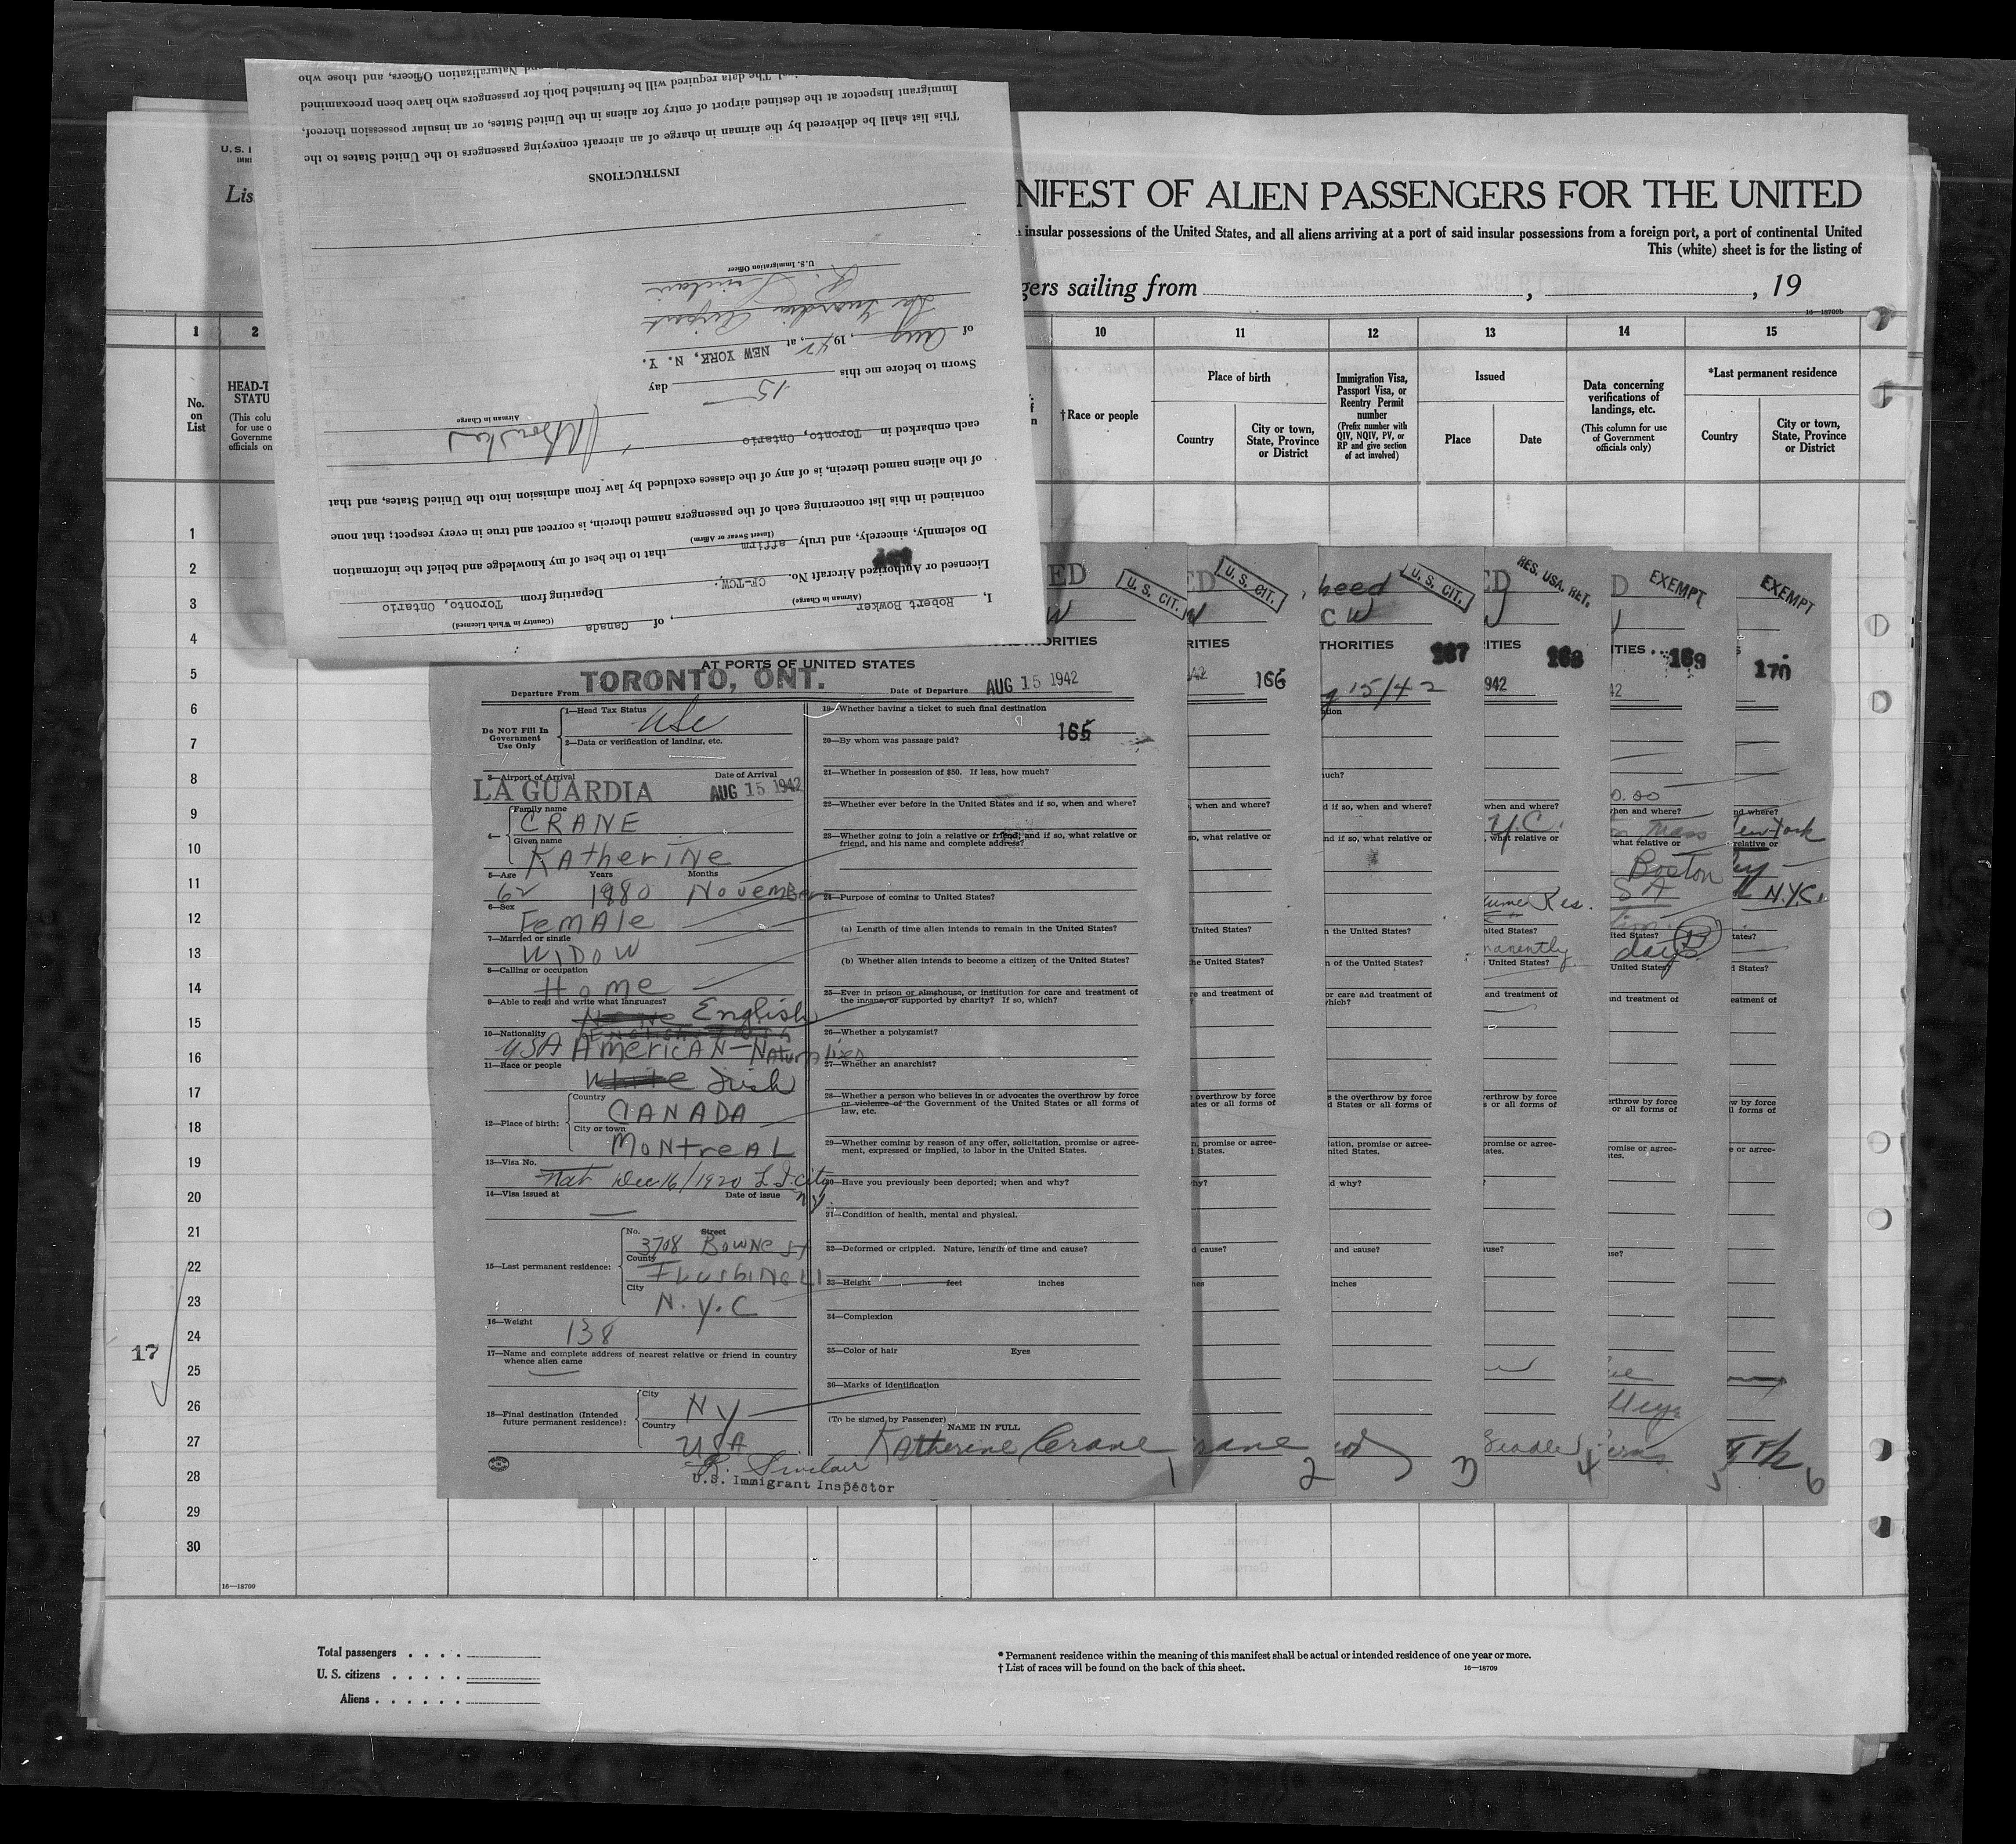 This list shall be delivered by the airman in charge of an aircraft conveying passengers to the United States to the
Immigrant Inspector at the destined airport of entry for aliens in the United States, or an insular possession thereof,
The data required will be furnished both for passengers who have been preexamined
Naturalization Officers, and those who
INSTRUCTIONS
I, Robert Bowker, of Canada
(Airman in Charge) (Country in Which Licensed)
Licensed or Authorized Aircraft No. CF-TCW. Departing from Toronto, Ontario
Do solemnly, sincerely, and truly affirm that to the best of my knowledge and belief the information
(Insert Swear or Affirm)
contained in this list concerning each of the passengers named therein, is correct and true in every respect; that none
of the aliens named therein, is of any of the classes excluded by law from admission into the United States, and that
each embarked in Toronto, Ontario
Airman in Charge
Sworn to before me this 15 day
of Aug, 1942, at NEW YORK, N. Y.
La Guardia Airport
R. Sinclair
U. S. Immigration Officer
NIFEST OF ALIEN PASSENGERS FOR THE UNITED
insular possessions of the United States, and all aliens arriving at a port of said insular possessions from a foreign port, a port of continental United
This (white) sheet is for the listing of
gers sailing from , , 19
16—18709b
U. S.
Lis
1 2 10 11 12 13 14 15
No. on List
HEAD-T
STATU
(This colu
for use o
Governme
officials on
†Race or people
Place of birth
Country
City or town, State, Province or District
Immigration Visa, Passport Visa, or Reentry Permit number
(Prefix number with QIV, NQIV, PV, or RP and give section of act involved)
Issued
Place
Date
Data concerning verifications of landings, etc.
(This column for use of Government officials only)
*Last permanent residence
Country
City or town, State, Province or District
1
2
3
4
5
6
7
8
9
10
11
12
13
14
15
16
17
18
19
20
21
22
23
24
25
26
27
28
29
30
17
AT PORTS OF UNITED STATES
Departure From TORONTO, ONT. Date of Departure AUG 15 1942
Do NOT Fill In Government Use Only
1—Head Tax Status USC
2—Data or verification of landing, etc.
3—Airport of Arrival Date of Arrival
LA GUARDIA AUG 15 1942
4— Family name
CRANE
Given name
Katherine
5—Age Years Months
62 1880 November
6—Sex
Female
7—Married or single
Widow
8—Calling or occupation
Home
9—Able to read and write what languages?
English
10—Nationality
USA American—Naturalized
11—Race or people
White Irish
12—Place of birth: Country
CANADA
City or town
Montreal
13—Visa No.
Nat Dec 16/1920 L.I. City NY
14—Visa issued at Date of issue
15—Last permanent residence: No. Street
3708 Bowne St
County
Flushing LI
City
N.Y.C
16—Weight
138
17—Name and complete address of nearest relative or friend in country whence alien came
18—Final destination (Intended future permanent residence): City
NY
Country
USA
R. Sinclair
U.S. Immigrant Inspector
19—Whether having a ticket to such final destination
165
20—By whom was passage paid?
21—Whether in possession of $50. If less, how much?
22—Whether ever before in the United States and if so, when and where?
23—Whether going to join a relative or friend; and if so, what relative or
friend, and his name and complete address?
24—Purpose of coming to United States?
(a) Length of time alien intends to remain in the United States?
(b) Whether alien intends to become a citizen of the United States?
25—Ever in prison or almshouse, or institution for care and treatment of
the insane, or supported by charity? If so, which?
26—Whether a polygamist?
27—Whether an anarchist?
28—Whether a person who believes in or advocates the overthrow by force
or violence of the Government of the United States or all forms of
law, etc.
29—Whether coming by reason of any offer, solicitation, promise or agree-
ment, expressed or implied, to labor in the United States.
30—Have you previously been deported; when and why?
31—Condition of health, mental and physical.
32—Deformed or crippled. Nature, length of time and cause?
33—Height feet inches
34—Complexion
35—Color of hair Eyes
36—Marks of identification
(To be signed by Passenger)
NAME IN FULL
Katherine Crane
1
U. S. CIT.
166
rane 2
U. S. CIT.
heed
CW
THORITIES
167
g 15/42
3
U. S. CIT.
RES. USA. RET.
168
942
Y.C.
ume Res.
manently
4
EXEMPT
169
0.00
Mass
Boston
days
5
EXEMPT
170
ew York
N.Y.C.
6
16—18709
Total passengers
U. S. citizens
Aliens
* Permanent residence within the meaning of this manifest shall be actual or intended residence of one year or more.
† List of races will be found on the back of this sheet. 16—18709